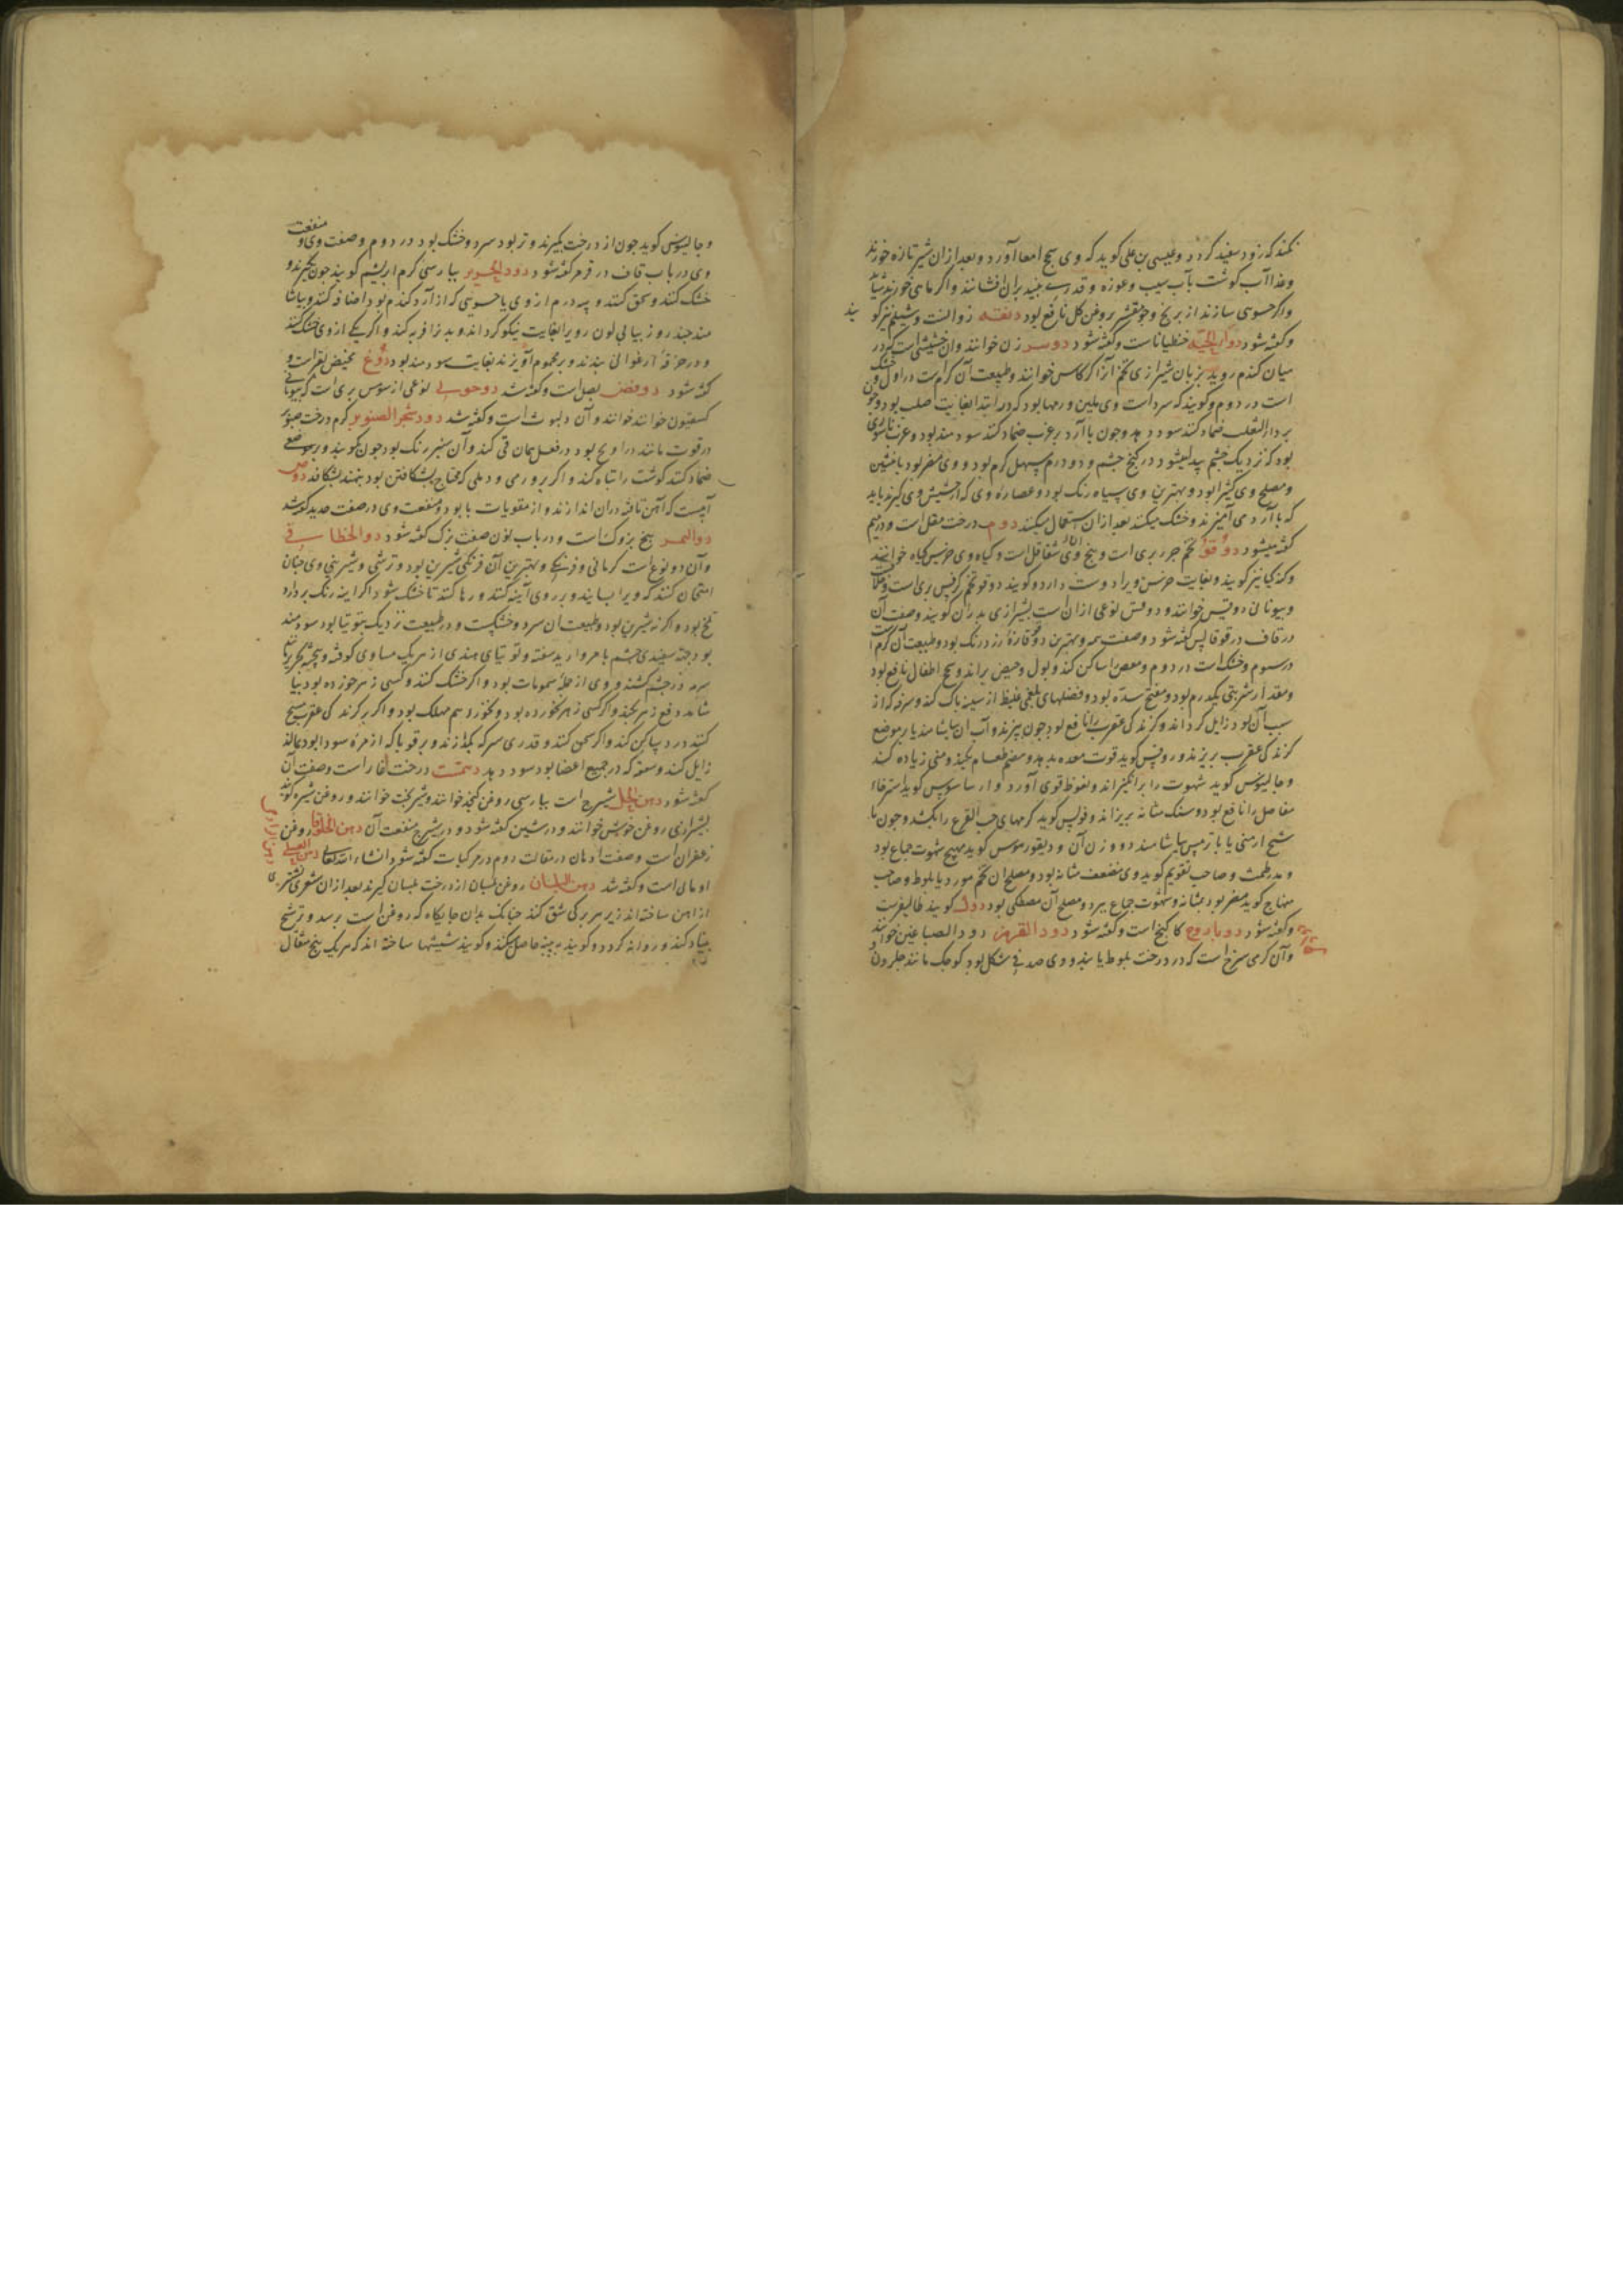 نکند که زود سفید کردد و عیسی بن علی کوید که وی سحج امعا آورد و بعد از ان شیر تازه خورند
و غذا آب کوشت بآب سیب و غوره و قدری بنید بران افشانند و اکر ماهی خورند شاید
و اکر حسوی سازند از برنج و جو مقشر بروغن کل نافع بود دنقه زوالنت و شیلم نیز کو
یند
و کفته شود دواء الحیه جنطیاناست و کفته شود دوسر زن خوانند و ان حشیشی است که در
میان کندم روید بزبان شیرازی تخم آنرا کاس خوانند و طبیعت آن کرم است در اول و خشک
است در دوم و کویند که سرد است و وی ملین ورمها بود که در ابتدا بغایت صلب بود و چون
بر داء الثعلب ضماد کنند سود دهد و چون با آرد بر غرب ضماد کنند سودمند بود و غرب ناسوری
بود که نزدیک چشم پیدا میشود در کنج چشم و دو درم مسهل کرم بود و وی مضر بود بانثیین
و مصلح وی کثیرا بود و بهترین وی سیاه رنک بود و عصاره وی که از حشیش وی کیرند باید
که با آرد می آمیزند و خشک میکنند بعد از ان استعمال میکنند دوم درخت مقل است و در میم
کفته میشود دوقو تخم جزر بری است و بیخ وی شقاقل است و کیاه وی خرس کیاه خوانند
و کزر کیا نیز کویند و بغایت خرس ویرا دوست دارد و کویند دوقو تخم کرفس بری است
و بیونانی دوقس خوانند و دوقس نوعی از ان است بشیرازی بدران کویند و صفت آن
در قاف در قوقالس کفته شود و صفت همه و بهترین دوقو تازه زرد رنک بود و طبیعت آن کرم است
در سوم و خشک است در دوم و مغص را ساکن کند و بول و حیض براند و سحج اطفال نافع بود
و مقدار شربتی یکدرم بود و مفتح سده بود و فضلهای بلغمی غلیظ از سینه پاک کند و سرفه که از
سبب آن بود زایل کرداند و کزندکی عقرب را نافع بود چون بپزند و آب ان بیاشامند یا بر موضع
کزندکی عقرب بریزند و روفس کوید قوت معده بدهد و هضم طعام بکند و منی زیاده کند
و جالینوس کوید شهوت را برانکیزاند و نعوظ قوی آورد و ارسا سوس کوید استرخاء
مفاصل را نافع بود و سنک مثانه بریزاند و فولس کوید کرمهای حب القرع را بکشد و چون با
شیح ارمنی یا با ترمس بیاشامند دو وزن آن و دیقوریدوس کوید مهیج شهوت جماع بود
و مدر طمث و صاحب تقویم کوید وی مضعف مثانه بود و مصلح ان تخم مورد یا بلوط و صاحب
منهاج کوید مضر بود بمثانه و شهوت جماع ببرد و مصلح آن مصطکی بود دوک کویند طالیفر است
و کفته شود دوبارفع کاکنج است و کفته شود دود القرمز دود الصباغین خوانند
و آن کرمی سرخ است که در درخت بلوط یابند و وی صدفی شکل بود کوچک مانند حلزون
و جالینوس کوید چون از درخت بکیرند و تر بود سرد و خشک بود در دوم و صفت وی و منفعت
وی در باب قاف در قرمز کفته شود دود الحریر بپارسی کرم ابریشم کویند چون بکیرند و
خشک کنند و سحق کنند و سه درم از وی با حسویی که از آرد کندم بود اضافه کنند و بیاشا
مند چند روز پیاپی لون روی را بغایت نیکو کرداند و بدنرا فربه کند و اکر یکی از وی خشک کنند
و در خرقه ارغوانی بندند و بر محموم آویزند بغایت سودمند بود دوغ مخیض بقر است و
کفته شود دوفص بصل است و کفته شد دوحوبی نوعی از سوس بری است که بیونانی
کسفیون خوانند و آن دبوث است و کفته شد دود شجر الصنوبر کرم درخت صنوبر
در قوت مانند ذراریح بود در فعل همان قی کند و آن سبز رنک بود چون بکویند و بر موضعی
ضماد کنند کوشت را تباه کند و اکر بر ورمی و دملی که محتاج بشکافتن بود بنهند بشکافد دوص
آبیست که آهن تافته در ان اندازند و از مقویات باه بود و منفعت وی در صفت حدید کفته شد
دوالنمر بیخ بزوک است و در باب نون صفت نزک کفته شود دوالخطاسقی
و آن دو نوع است کرمانی و فرنکی و بهترین آن فرنکی شیرین بود و ترشی و شیرینی وی چنان
امتحان کنند که ویرا بسایند و بر روی آینه کنند و رها کنند تا خشک شود اکر اینه رنک بردارد
تلخ بود و اکر نه شیرین بود و طبیعت ان سرد و خشکست و در طبیعت نزدیک بتوتیا بود سودمند
بود جهة سفیدی چشم با مروارید سفته و توتیای هندی از هر یک مساوی کوفته و بیخته بحریر تا
سرمه در چشم کشند و وی از جمله سمومات بود و اکر خشک کنند و کسی زهر خورده بود بیا
شامد دفع زهر بکند و اکر کسی زهر نخورده بود و بخورد هم مهلک بود و اکر بر کزندکی عقرب مسح
کنند درد ساکن کند و اکر سحق کنند و قدری سرکه بکدازند و بر قوبا که از مره سودا بود بمالند
زایل کند و سعفه که در جمیع اعضا بود سود دهد دهمست درخت لغار است و صفت آن
کفته شود دهن الحل شیرج است بپارسی روغن کنجد خوانند و شیر بخت خوانند و روغن شیره کویند
بشیرازی روغن خوش خوانند و در شین کفته شود و در شیرج منفعت آن دهن الخلوق روغن
زعفران است و صفت ادهان در مقالت دوم در مرکبات کفته شود انشاء الله تعالی دهن العسلی
اومالی است و کفته شد دهن البلسان روغن بلسان از درخت بلسان کیرند بعد از ان شعری نشتری
از اهن ساخته اند زیر هر برکی شق کنند چنانک بدان جایکاه که روغن است برسد و ترشح
بنیاد کند و روانه کردد و کویند به پنبه حاصل کنند و کویند شیشها ساخته اند که هر یک پنج مثقال